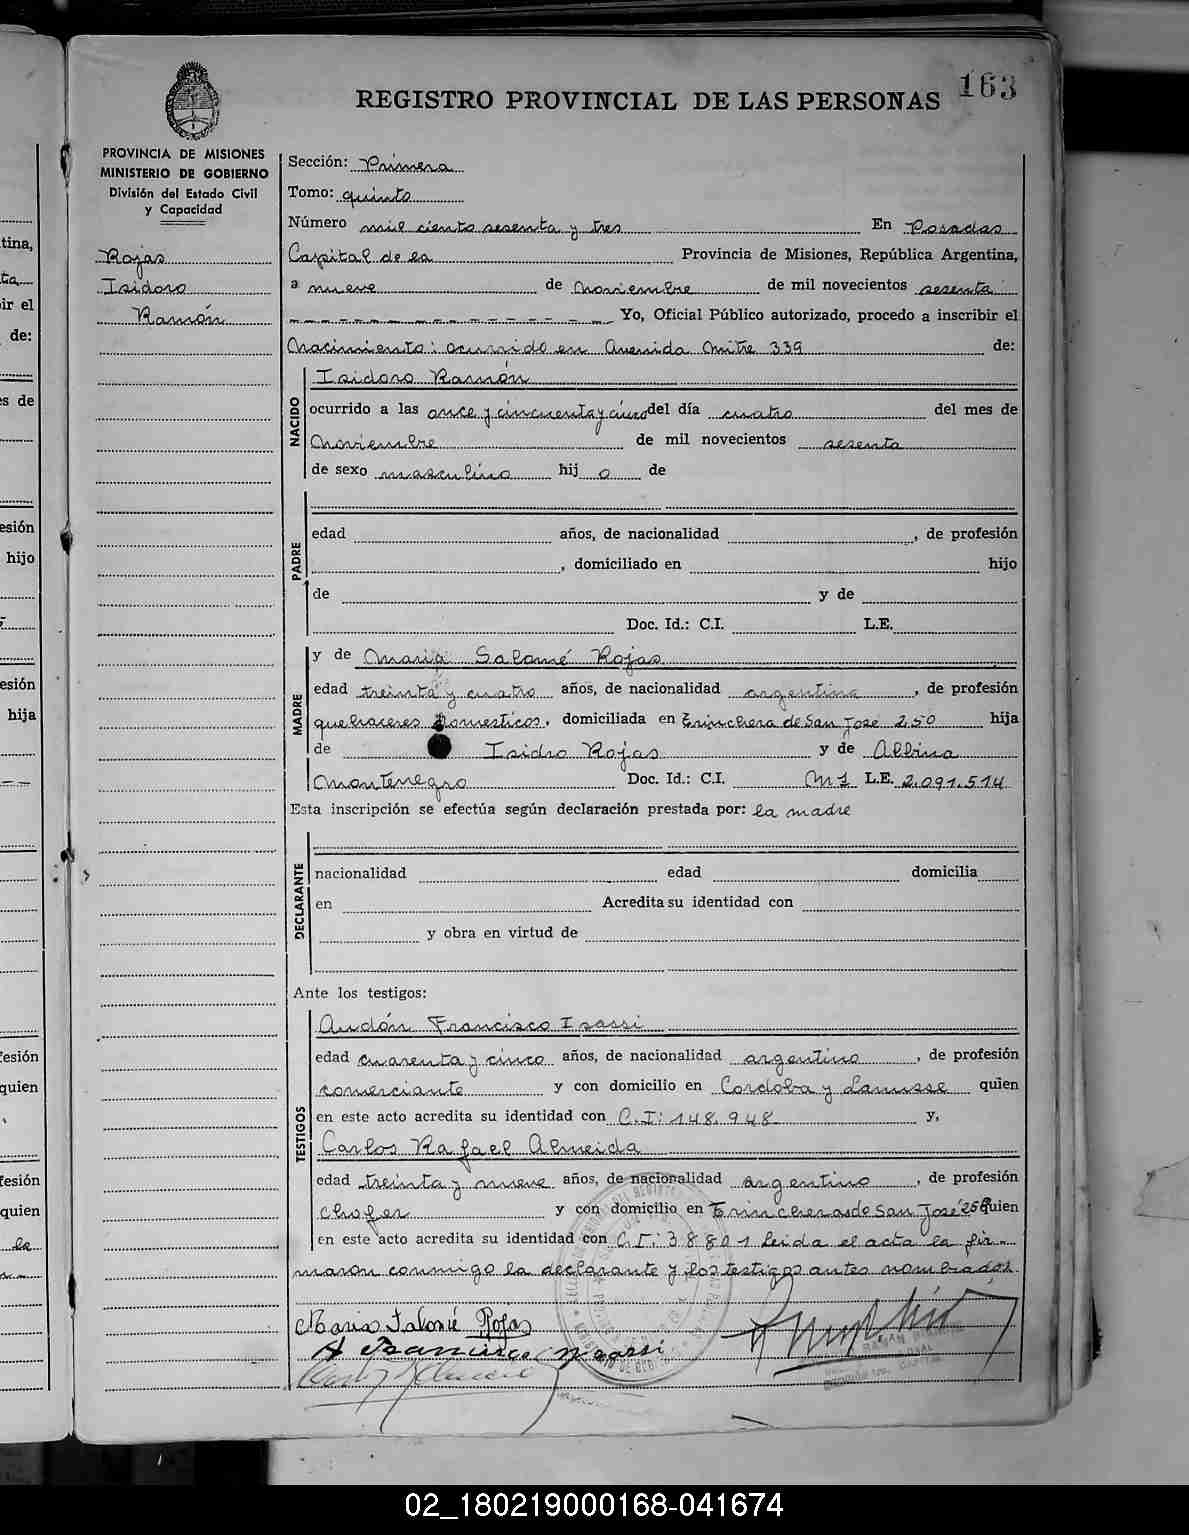 163
REGISTRO PROVINCIAL DE LAS PERSONAS
PROVINCIA DE MISIONES
MINISTERIO DE GOBIERNO
División del Estado Civil
y Capacidad
Rojas
Isidoro
Ramón
Sección: Primera
Tomo: quinto
Número mil ciento sesenta y tres En Posadas
Capital de la Provincia de Misiones, República Argentina,
a nueve de Noviembre de mil novecientos sesenta
Yo, Oficial Público autorizado, procedo a inscribir el
Nacimiento: ocurrido en Avenida Mitre 339 de:
NACIDO
Isidoro Ramón
ocurrido a las once y cincuenta y cinco del día cuatro del mes de
Noviembre de mil novecientos sesenta
de sexo masculino hij o de
PADRE
edad años, de nacionalidad , de profesión
, domiciliado en hijo
de y de
Doc. Id.: C.I. L.E.
MADRE
y de Maria Salomé Rojas
edad treinta y cuatro años, de nacionalidad argentina , de profesión
quehaceres domesticos, domiciliada en Trinchera de San José 250 hija
de Isidro Rojas y de Albina
Montenegro Doc. Id.: C.I. M1 L.E. 2.091.514
Esta inscripción se efectúa según declaración prestada por: la madre
DECLARANTE
nacionalidad edad domicilia
en Acredita su identidad con
y obra en virtud de
Ante los testigos:
TESTIGOS
Audón Francisco Isassi
edad cuarenta y cinco años, de nacionalidad argentino , de profesión
comerciante y con domicilio en Cordoba y Lanusse quien
en este acto acredita su identidad con C.I: 148.948 y,
Carlos Rafael Almeida
edad treinta y nueve años, de nacionalidad argentino , de profesión
chofer y con domicilio en Trincheras de San José 258 quien
en este acto acredita su identidad con C.I: 38801 leida el acta la fir-
maron conmigo la declarante y los testigos antes nombrados.
Maria Salomé Rojas
A Francisco Isassi
tina,
ta
ir el
de:
es de
esión
hijo
esión
hija
fesión
quien
fesión
quien
la
02_180219000168-041674